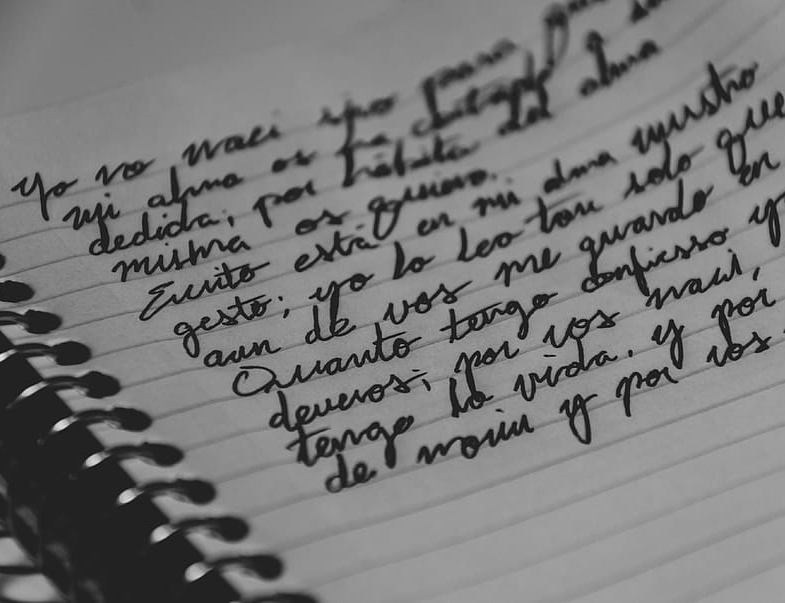 Yo no naci sino para
mi alma os ha cortado a su
dedida; por hábito del alma
misma os quiero.
Escrito está en mi alma vuestro
gesto; yo lo leo tan solo que
aun de vos me guardo en
Quanto tengo confiesso y
deveros; por vos naci,
tengo la vida. y por
de morir y por vos